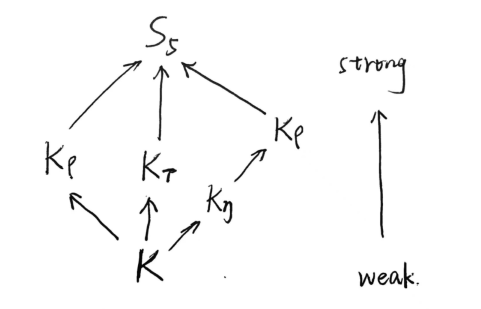 S₅
strong
Kρ
Kτ
Kρ
Kη
K
weak.